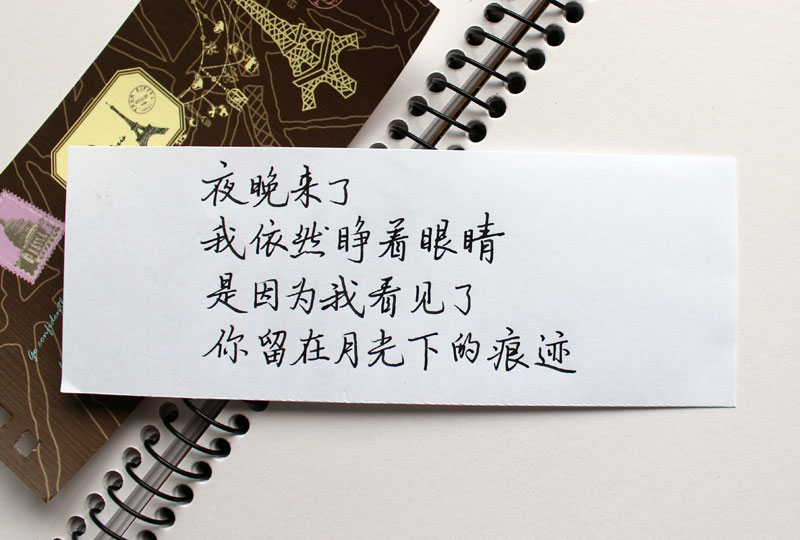 夜晚来了
我依然睁着眼睛
是因为我看见了
你留在月光下的痕迹